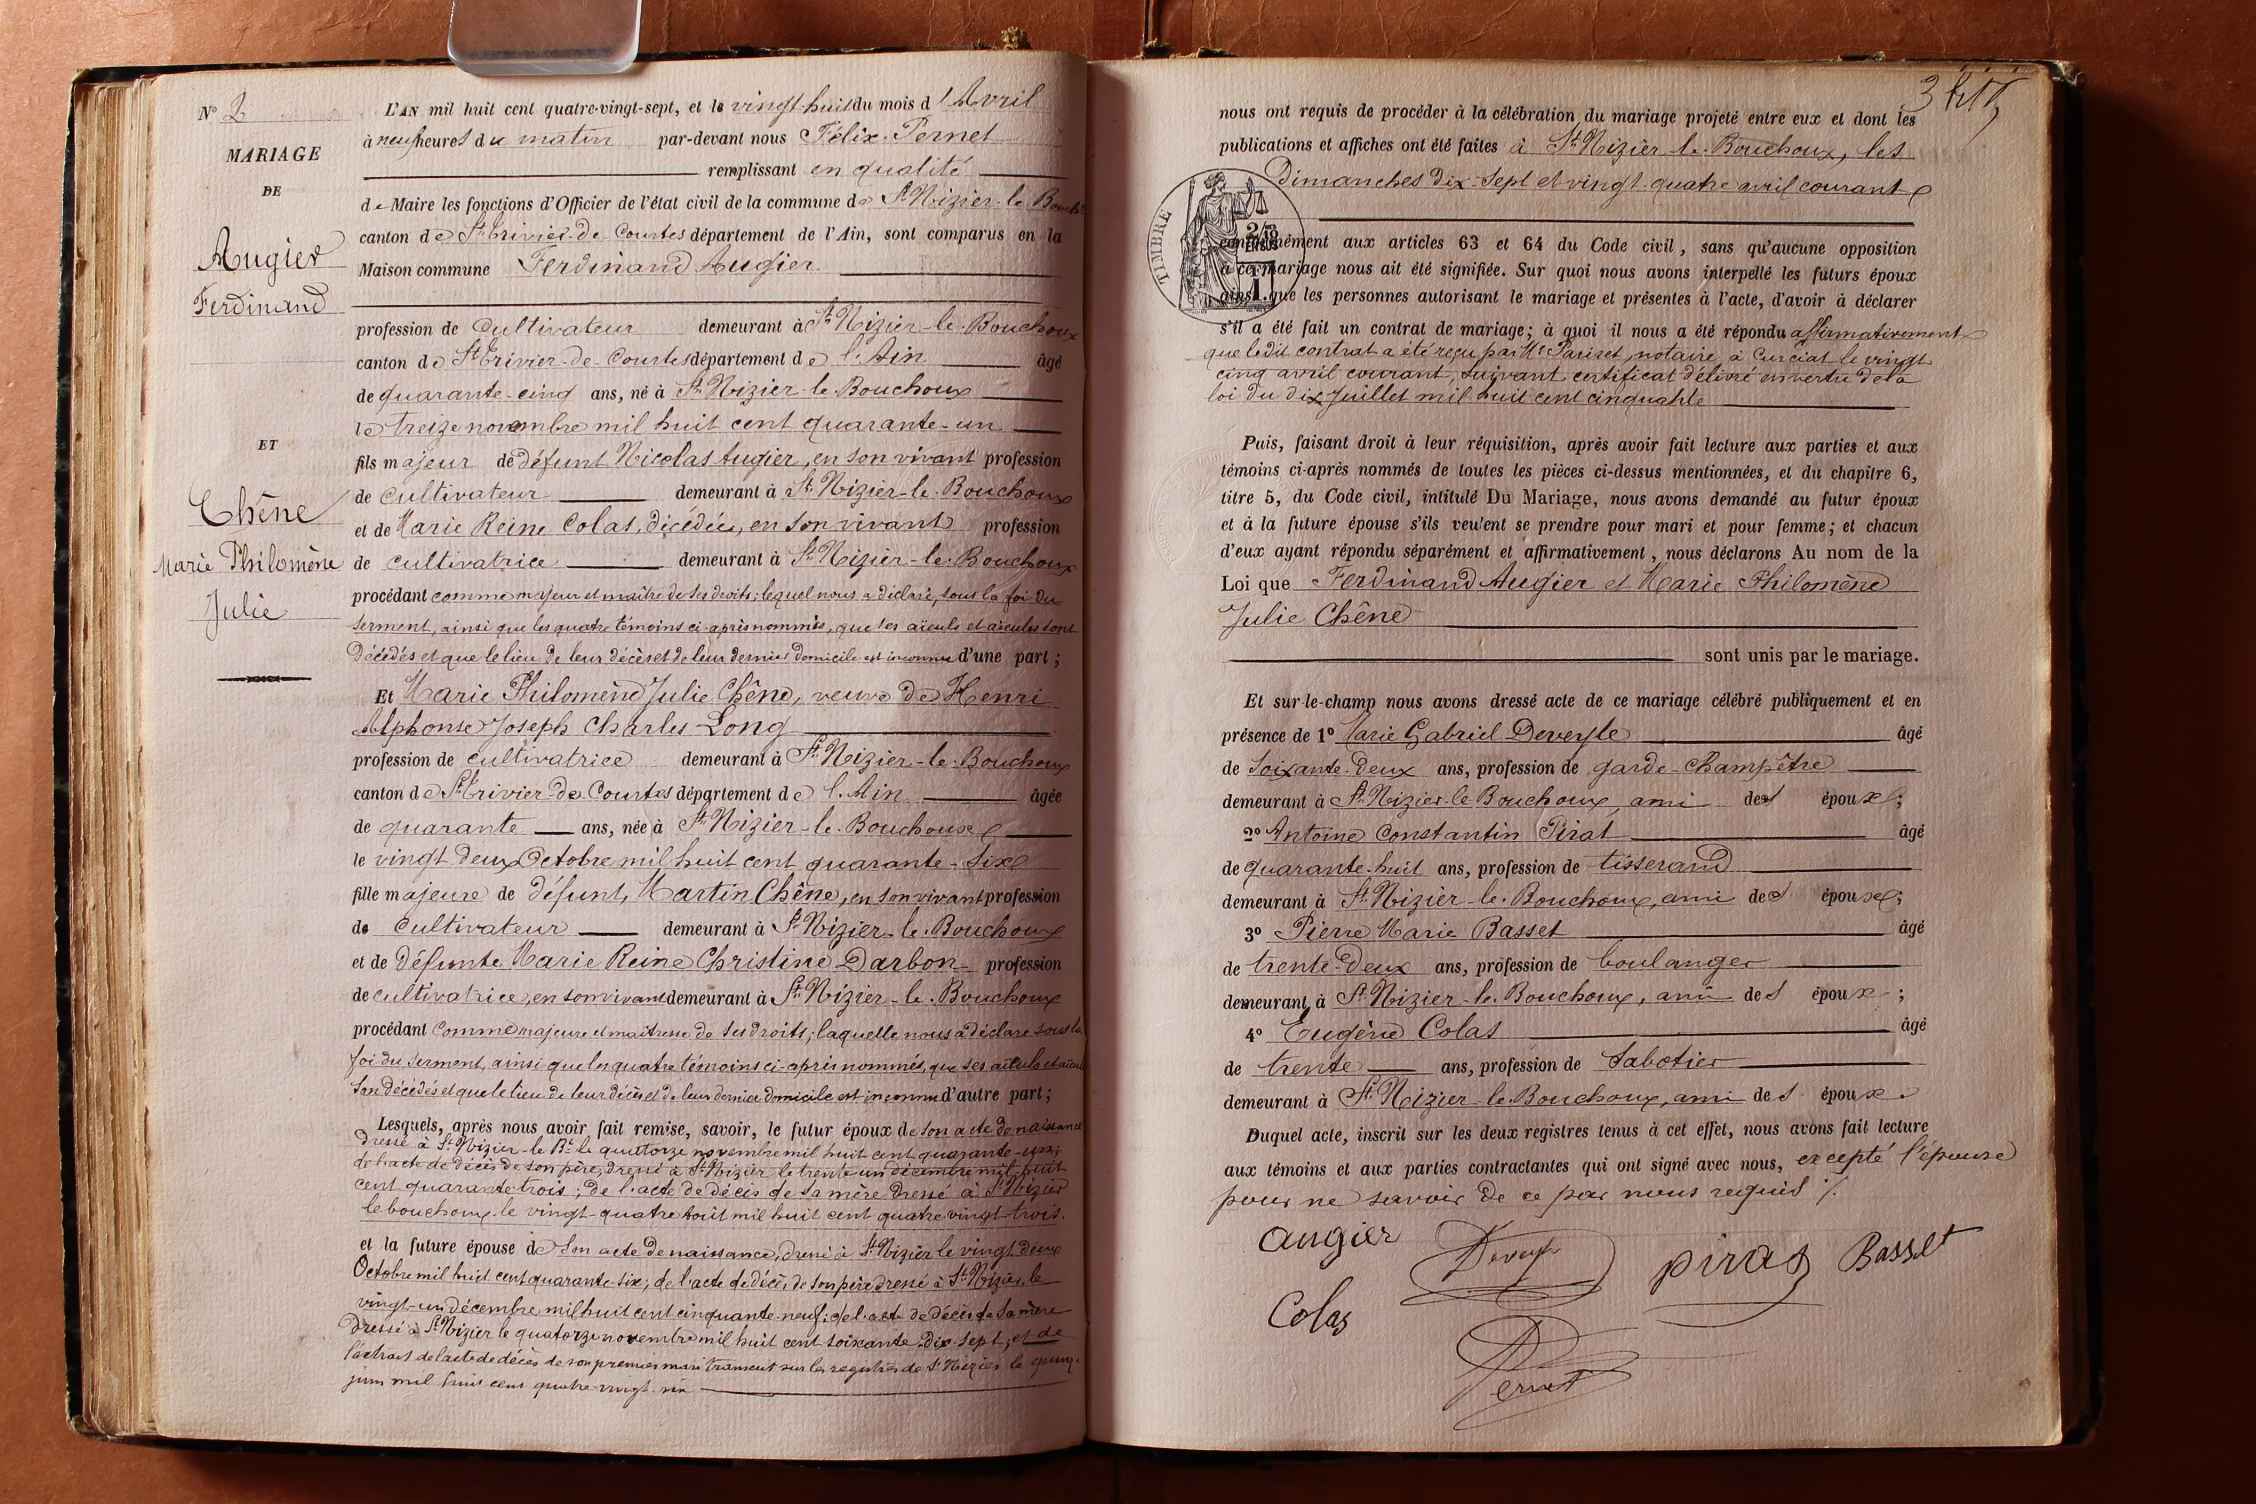 N° 2
MARIAGE
DE
Augier
Ferdinand
ET
Chêne
Marie Philomène
Julie
L'AN mil huit cent quatre-vingt-sept, et le vingt-huit du mois d'Avril
à neuf heures du matin par-devant nous Félix Pernet
remplissant en qualité
de Maire les fonctions d'Officier de l'état civil de la commune de St Nizier-le-Bouch
canton de St Trivier-de-Courtes département de l'Ain, sont comparus en la
Maison commune Ferdinand Augier
profession de Cultivateur demeurant à St Nizier-le-Bouchoux
canton de St Trivier-de-Courtes département de l'Ain âgé
de quarante-cinq ans, né à St Nizier-le-Bouchoux
le treize novembre mil huit cent quarante-un
fils majeur de défunt Nicolas Augier, en son vivant profession
de cultivateur demeurant à St Nizier-le-Bouchoux
et de Marie Reine Colas, décédée, en son vivant profession
de cultivatrice demeurant à St Nizier-le-Bouchoux
procédant comme majeur et maître de ses droits; lequel nous a déclaré, sous la foi du
serment, ainsi que les quatre témoins ci-après nommés, que ses aïeuls et aïeules sont
décédés et que le lieu de leur décès et de leur dernier domicile est inconnu d'une part;
Et Marie Philomène Julie Chêne, veuve de Henri
Alphonse Joseph Charles Long
profession de cultivatrice demeurant à St Nizier-le-Bouchoux
canton de St Trivier-de-Courtes département de l'Ain âgée
de quarante ans, née à St Nizier-le-Bouchoux
le vingt deux Octobre mil huit cent quarante-six
fille majeure de défunt, Martin Chêne, en son vivant profession
de cultivateur demeurant à St Nizier-le-Bouchoux
et de défunte Marie Reine Christine Darbon profession
de cultivatrice, en son vivant demeurant à St Nizier-le-Bouchoux
procédant comme majeure et maîtresse de ses droits; laquelle nous a déclaré sous la
foi du serment, ainsi que les quatre témoins ci-après nommés, que ses aïeuls et aïeules
son décédés et que le lieu de leur décès et de leur dernier domicile est inconnu d'autre part;
Lesquels, après nous avoir fait remise, savoir, le futur époux de son acte de naissance
dressé à St Nizier-le-Bx le quatorze novembre mil huit cent quarante-un;
de l'acte de décès de son père, dressé à St Nizier le trente un décembre mil huit
cent quarante trois; de l'acte de décès de sa mère dressé à St Nizier
le bouchoux le vingt-quatre août mil huit cent quatre vingt-trois.
et la future épouse de son acte de naissance, dressé à St Nizier le vingt deux
Octobre mil huit cent quarante-six; de l'acte de décès de son père dressé à St Nizier, le
vingt-un décembre mil huit cent cinquante-neuf; de l'acte de décès de sa mère
dressé à St Nizier le quatorze novembre mil huit cent soixante-dix-sept; et de
l'extrait de l'acte de décès de son premier mari transcrit sur les registres de St Nizier le
juin mil huit cent quatre-vingt-six
3
nous ont requis de procéder à la célébration du mariage projeté entre eux et dont les
publications et affiches ont été faites à St Nizier-le-Bouchoux, les
Dimanches dix-sept et vingt-quatre avril courant
TIMBRE
conformément aux articles 63 et 64 du Code civil, sans qu'aucune opposition
à ce mariage nous ait été signifiée. Sur quoi nous avons interpellé les futurs époux
ainsi que les personnes autorisant le mariage et présentes à l'acte, d'avoir à déclarer
s'il a été fait un contrat de mariage; à quoi il nous a été répondu affirmativement
que ledit contrat a été reçu par Me Pariset, notaire à Curciat le vingt
cinq avril courant, suivant certificat délivré en vertu de la
loi du dix Juillet mil huit cent cinquante
Puis, faisant droit à leur réquisition, après avoir fait lecture aux parties et aux
témoins ci-après nommés de toutes les pièces ci-dessus mentionnées, et du chapitre 6,
titre 5, du Code civil, intitulé Du Mariage, nous avons demandé au futur époux
et à la future épouse s'ils veulent se prendre pour mari et pour femme; et chacun
d'eux ayant répondu séparément et affirmativement, nous déclarons Au nom de la
Loi que Ferdinand Augier et Marie Philomène
Julie Chêne
sont unis par le mariage.
Et sur-le-champ nous avons dressé acte de ce mariage célébré publiquement et en
présence de 1° Marie Gabriel Deveyle âgé
de soixante-deux ans, profession de garde-champêtre
demeurant à St Nizier le Bouchoux, ami des époux;
2° Antoine Constantin Pirat âgé
de quarante-huit ans, profession de tisserand
demeurant à St Nizier-le-Bouchoux, ami des époux;
3° Pierre Marie Basset âgé
de trente-deux ans, profession de boulanger
demeurant à St Nizier-le-Bouchoux, ami des époux;
4° Eugène Colas âgé
de trente ans, profession de Sabotier
demeurant à St Nizier-le-Bouchoux, ami des époux.
Duquel acte, inscrit sur les deux registres tenus à cet effet, nous avons fait lecture
aux témoins et aux parties contractantes qui ont signé avec nous, excepté l'épouse
pour ne savoir de ce par nous requis ./.
augier
Devey
piras
Basset
Colas
Pernet